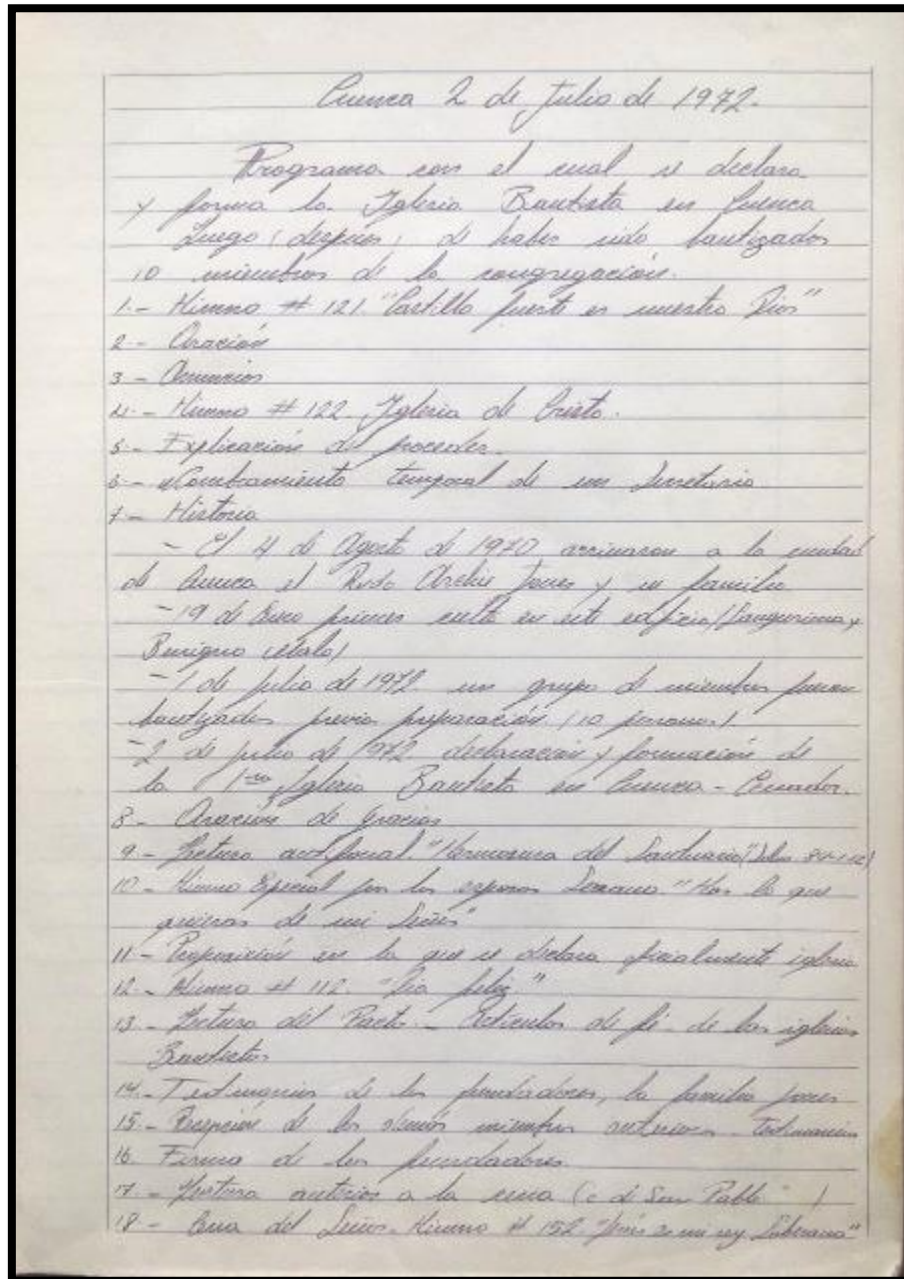 Cuenca 2 de Julio de 1972.
Programa con el cual se declara
y forma la Iglesia Bautista en Cuenca
Luego (despues) de haber sido bautizados
10 miembros de la congregación.
1.- Himno # 121. "Castillo fuerte es nuestro Dios"
2.- Oración
3.- Anuncios
4.- Himno # 122. Iglesia de Cristo.
5.- Explicación de proceder.
6.- Nombramiento temporal de un Secretario
7.- Historia
- El 4 de Agosto de 1970 arrivaron a la ciudad
de Cuenca el Rvdo Archie Jones y su familia
- 19 de Enero primer culto en este edificio (Sangurima y
Benigno Malo)
- 1 de julio de 1972 un grupo de miembros fueron
bautizados previa preparación (10 personas)
- 2 de julio de 1972 declaración y formación de
la 1ra Iglesia Bautista en Cuenca - Ecuador.
8.- Oración de gracias
9.- Lectura "Hermosura del Santuario" 84-1-12)
10.- Himno Especial por los esposos Serrano "Haz lo que
quieras de mi Señor"
11.- Proposición en la que se declara oficialmente iglesia
12.- Himno # 112. "Día feliz"
13.- Lectura del Pacto - Artículos de fé de las iglesias
Bautistas
14.- Testimonios de los fundadores, la familia Jones
15.- Recepción de los demás miembros Testimonios
16. Firma de los fundadores.
17.- Lectura anterior a la cena (c d San Pablo )
18.- Cena del Señor. Himno # 152. "Jesús es mi rey Soberano"